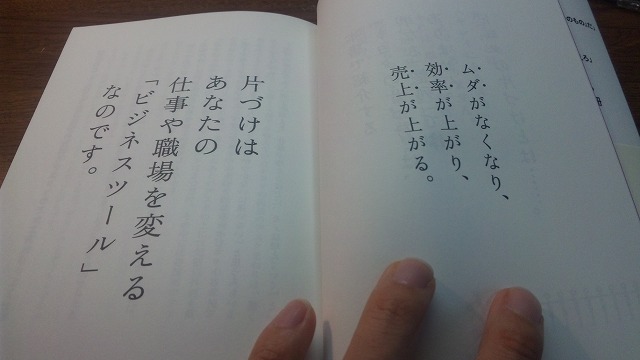 ムダがなくなり、
効率が上がり、
売上が上がる。
片づけは
あなたの
仕事や職場を変える
「ビジネスツール」
なのです。